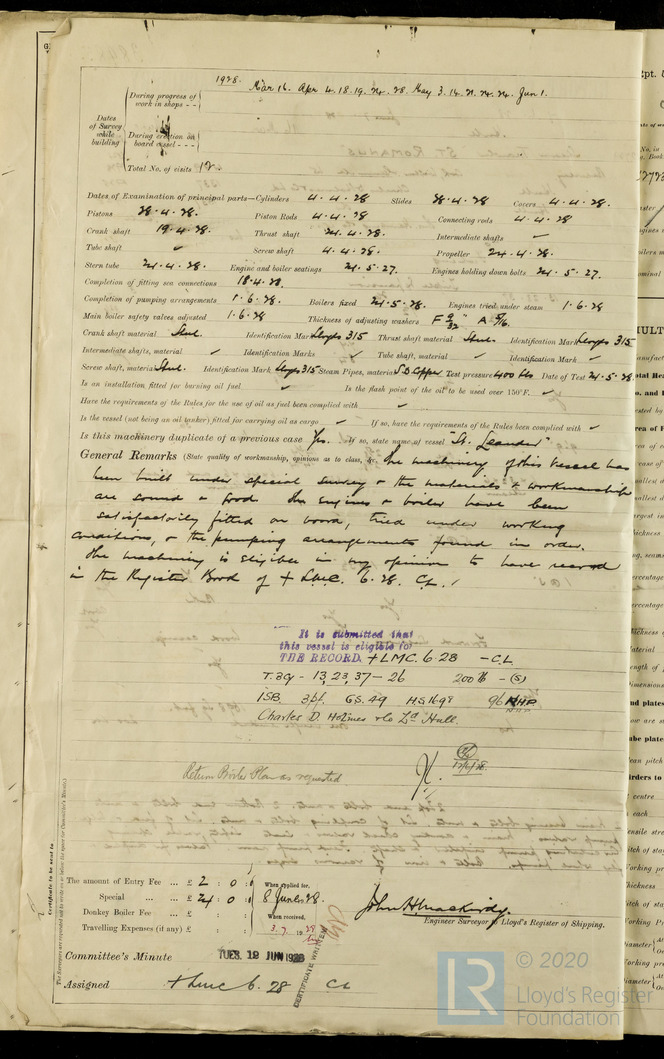 1928. Mar 16. Apr 4. 18. 19. 24. 28. May 3. 14. 21. 24. 24. Jun 1.
During progress of work in shops - -
Dates of Survey while building
During erection on board vessel - - -
Total No. of visits 12.
Dates of Examination of principal parts—Cylinders 4.4.28 Slides 28.4.28 Covers 4.4.28
Pistons 28.4.28. Piston Rods 4.4.28 Connecting rods 4.4.28
Crank shaft 19.4.28. Thrust shaft 24.4.28. Intermediate shafts ✓
Tube shaft ✓ Screw shaft 4.4.28. Propeller 24.4.28.
Stern tube 24.4.28. Engine and boiler seatings 24.5.27. Engines holding down bolts 24.5.27.
Completion of fitting sea connections 18.4.28.
Completion of pumping arrangements 1.6.28. Boilers fixed 24.5.28. Engines tried under steam 1.6.28
Main boiler safety valves adjusted 1.6.28 Thickness of adjusting washers F 9/32" A 5/16.
Crank shaft material Steel. Identification Mark Lloyds 315 Thrust shaft material Steel. Identification Mark Lloyds 315
Intermediate shafts, material ✓ Identification Marks ✓ Tube shaft, material ✓ Identification Mark ✓
Screw shaft, material Steel. Identification Mark Lloyds 315 Steam Pipes, material S.D Copper Test pressure 400 lbs Date of Test 24.5.28
Is an installation fitted for burning oil fuel ✓ Is the flash point of the oil to be used over 150°F. ✓
Have the requirements of the Rules for the use of oil as fuel been complied with ✓
Is the vessel (not being an oil tanker) fitted for carrying oil as cargo ✓ If so, have the requirements of the Rules been complied with ✓
Is this machinery duplicate of a previous case Yes. If so, state name of vessel "St. Leander"
General Remarks (State quality of workmanship, opinions as to class, &c. The machinery of this vessel has
been built under special survey & the materials & workmanship
are sound & good. The engines & boiler have been
satisfactorily fitted on board, tried under working
conditions, & the pumping arrangements found in order.
The machinery is eligible in my opinion to have record
in the Register Book of + LMC. 6.28. CL.
It is submitted that
this vessel is eligible for
THE RECORD. + LMC. 6.28 - CL
T.3Cy - 13, 23, 37 - 26 200 lb - (S)
1SB 3pf. GS. 49 HS 1698 96 NHP
Charles D. Holmes & Co Ld Hull.
12/6/28.
Return Boiler Plan as requested
Certificate to be sent to
The amount of Entry Fee ... £ 2 : 0 :
Special ... ... £ 24 : 0 :
Donkey Boiler Fee ... £ : :
Travelling Expenses (if any) £ : :
When applied for.
8 June 1928.
When received,
3.7.1928
John H Mackirdy.
Engineer Surveyor to Lloyd's Register of Shipping.
Committee's Minute TUES. 12 JUN 1928
Assigned + LMC 6.28 CL
CERTIFICATE WRITTEN
© 2020
LR
Lloyd's Register
Foundation